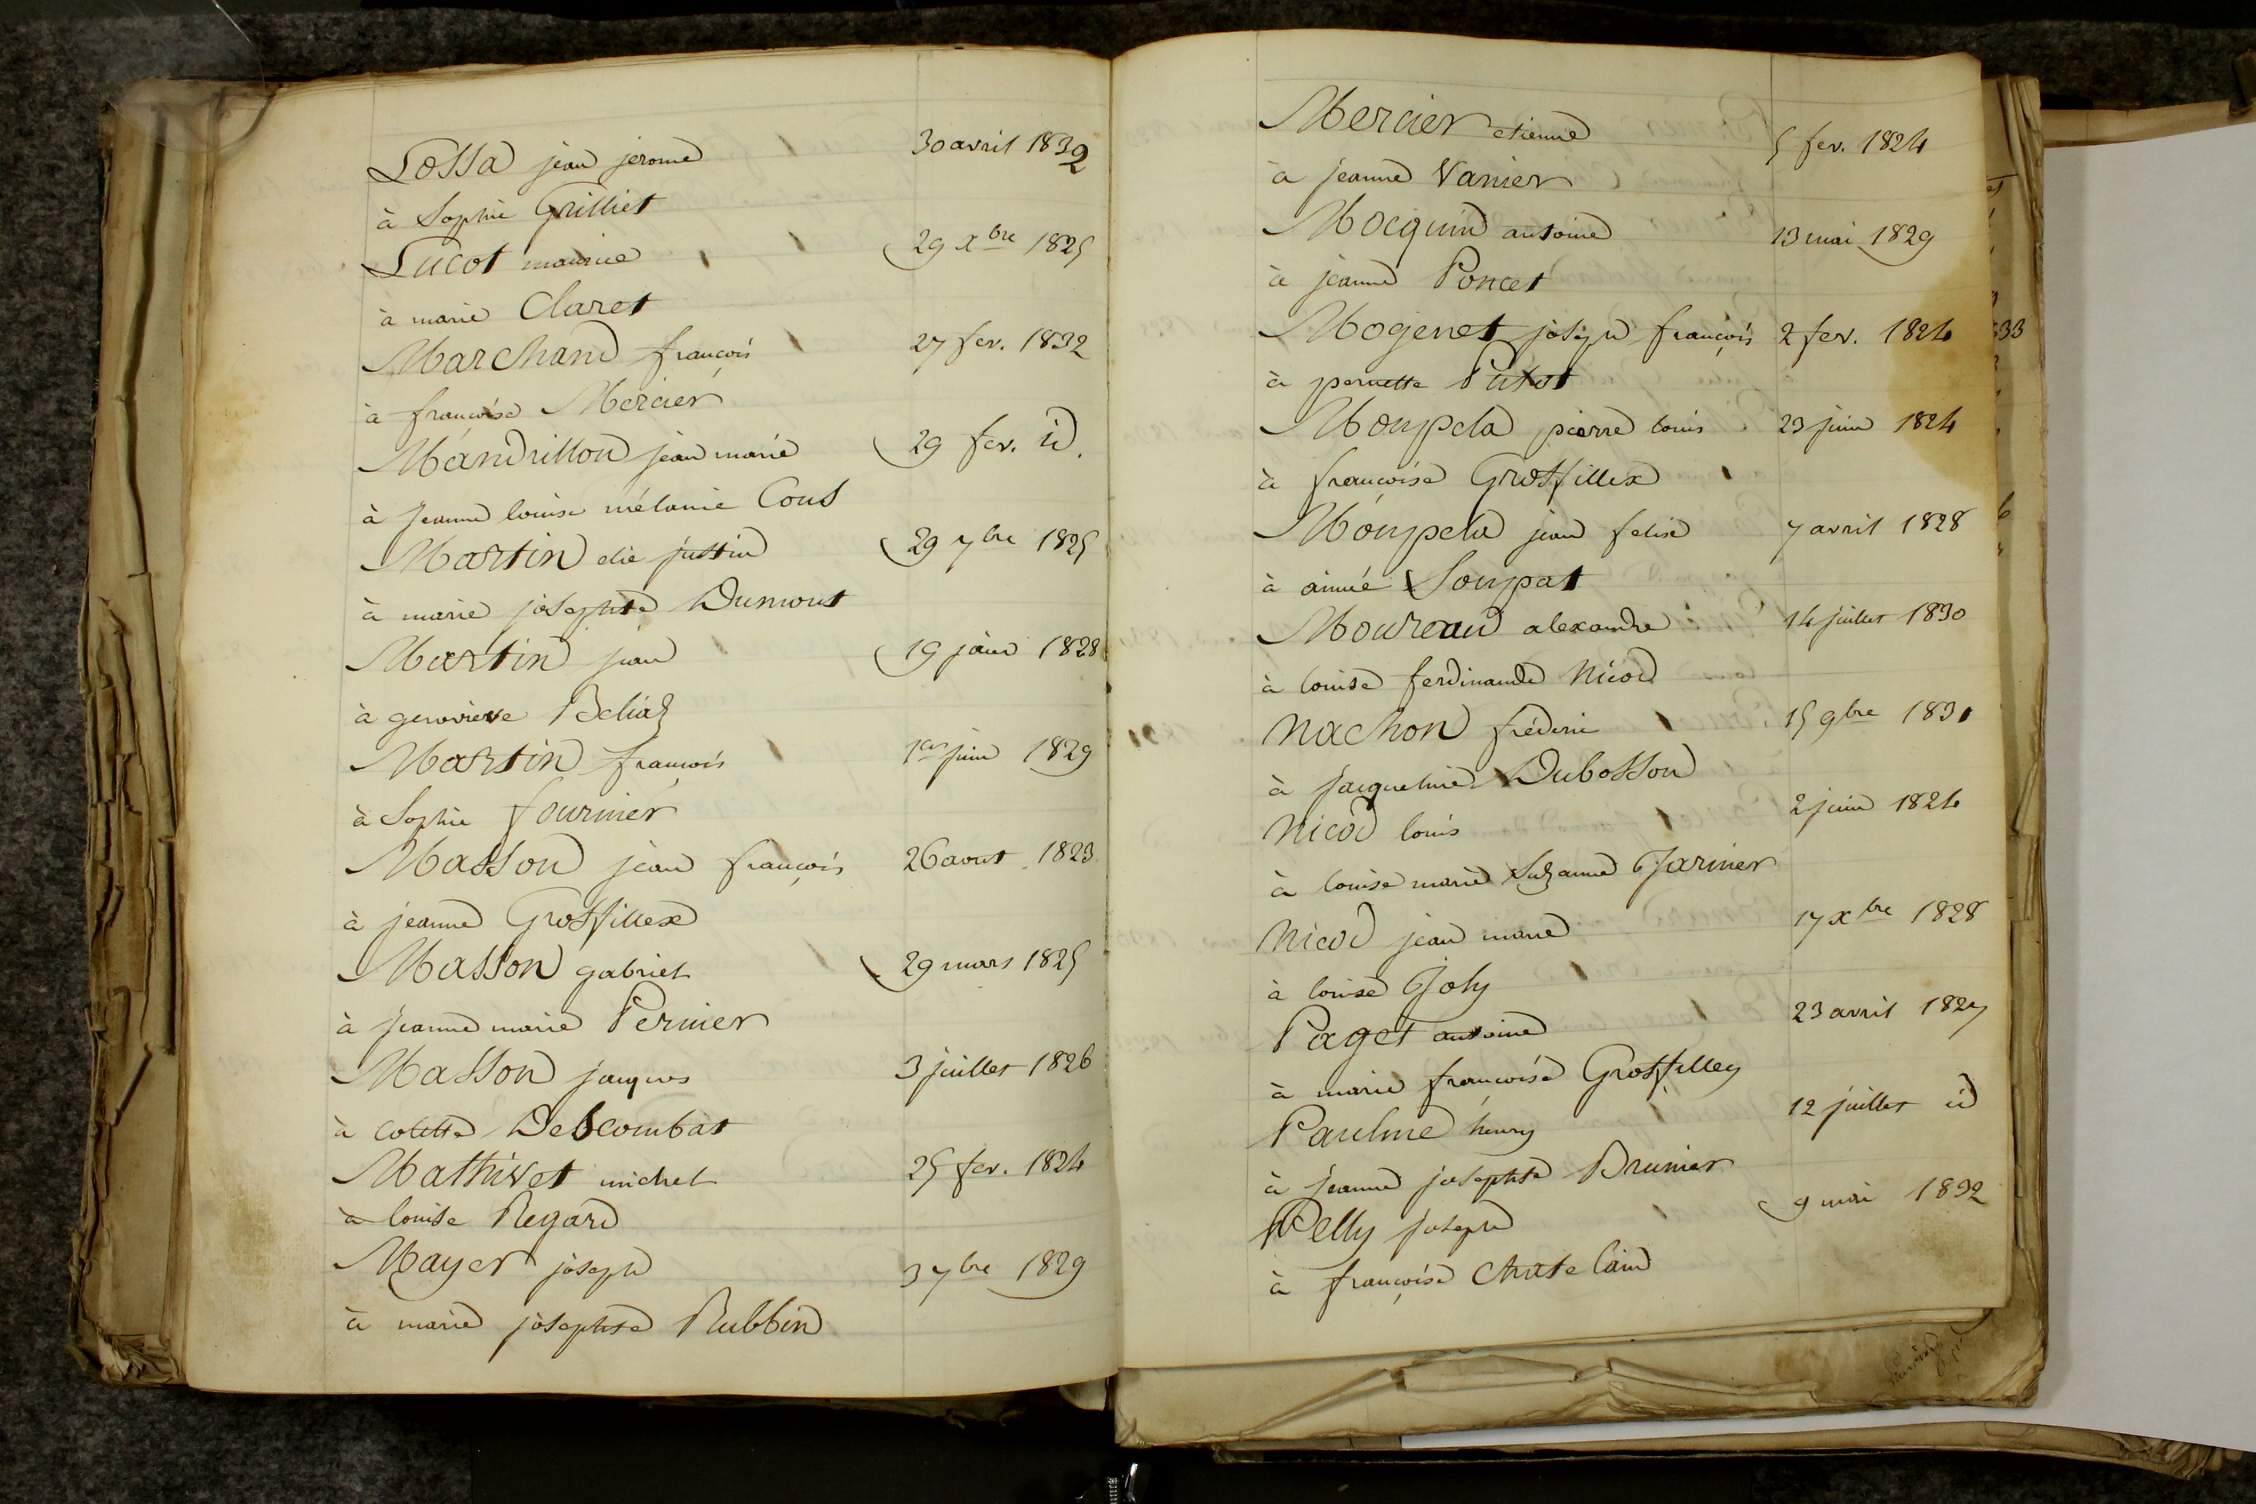 Lossa jean jerome 30 avril 1832
à Sophie Grilliet
Lucot maurice 29 xbre 1825
à marie Claret
Marchand françois 27 fev. 1832
à françoise Mercier
Mandrillon jean marie 29 fev. id.
à jeanne louise mélanie Cous
Martin elie justin 29 7bre 1825
à marie josephte Dumont
Martin jean 19 janv 1828
à genevieve Beliaz
Martin françois 1er juin 1829
à Sophie fournier
Masson jean françois 26 aout 1823
à jeanne Grosfillex
Masson gabriel 29 mars 1825
à jeanne marie Pernier
Masson jacques 3 juillet 1826
à colette Descombat
Mathivet michel 25 fev. 1824
à louise Regard
Mayer joseph 3 7bre 1829
à marie josephte Rubbin
Mercier etienne 5 fev. 1824
à jeanne Vanier
Mocquin antoine 13 mai 1829
à jeanne Poncet
Mogenet joseph françois 2 fev. 1824
à pernette Putot
Moupela pierre louis 23 juin 1824
à françoise Grosfillex
Moupela jean felix 7 avril 1828
à aimée Soupat
Moureau alexandre 14 juillet 1830
à louise ferdinande Nicod
Nachon fréderic 15 9bre 1831
à jacqueline Dubosson
Nicod louis 2 juin 1824
à louise marie Suzanne Jarinier
Nicod jean marie 17 xbre 1828
à louise Joly
Paget antoine 23 avril 1827
à marie françoise Grosfilley
Pauline henry 12 juillet id
à jeanne josephte Brunier
Pelly joseph 9 mai 1832
à françoise Chatelain